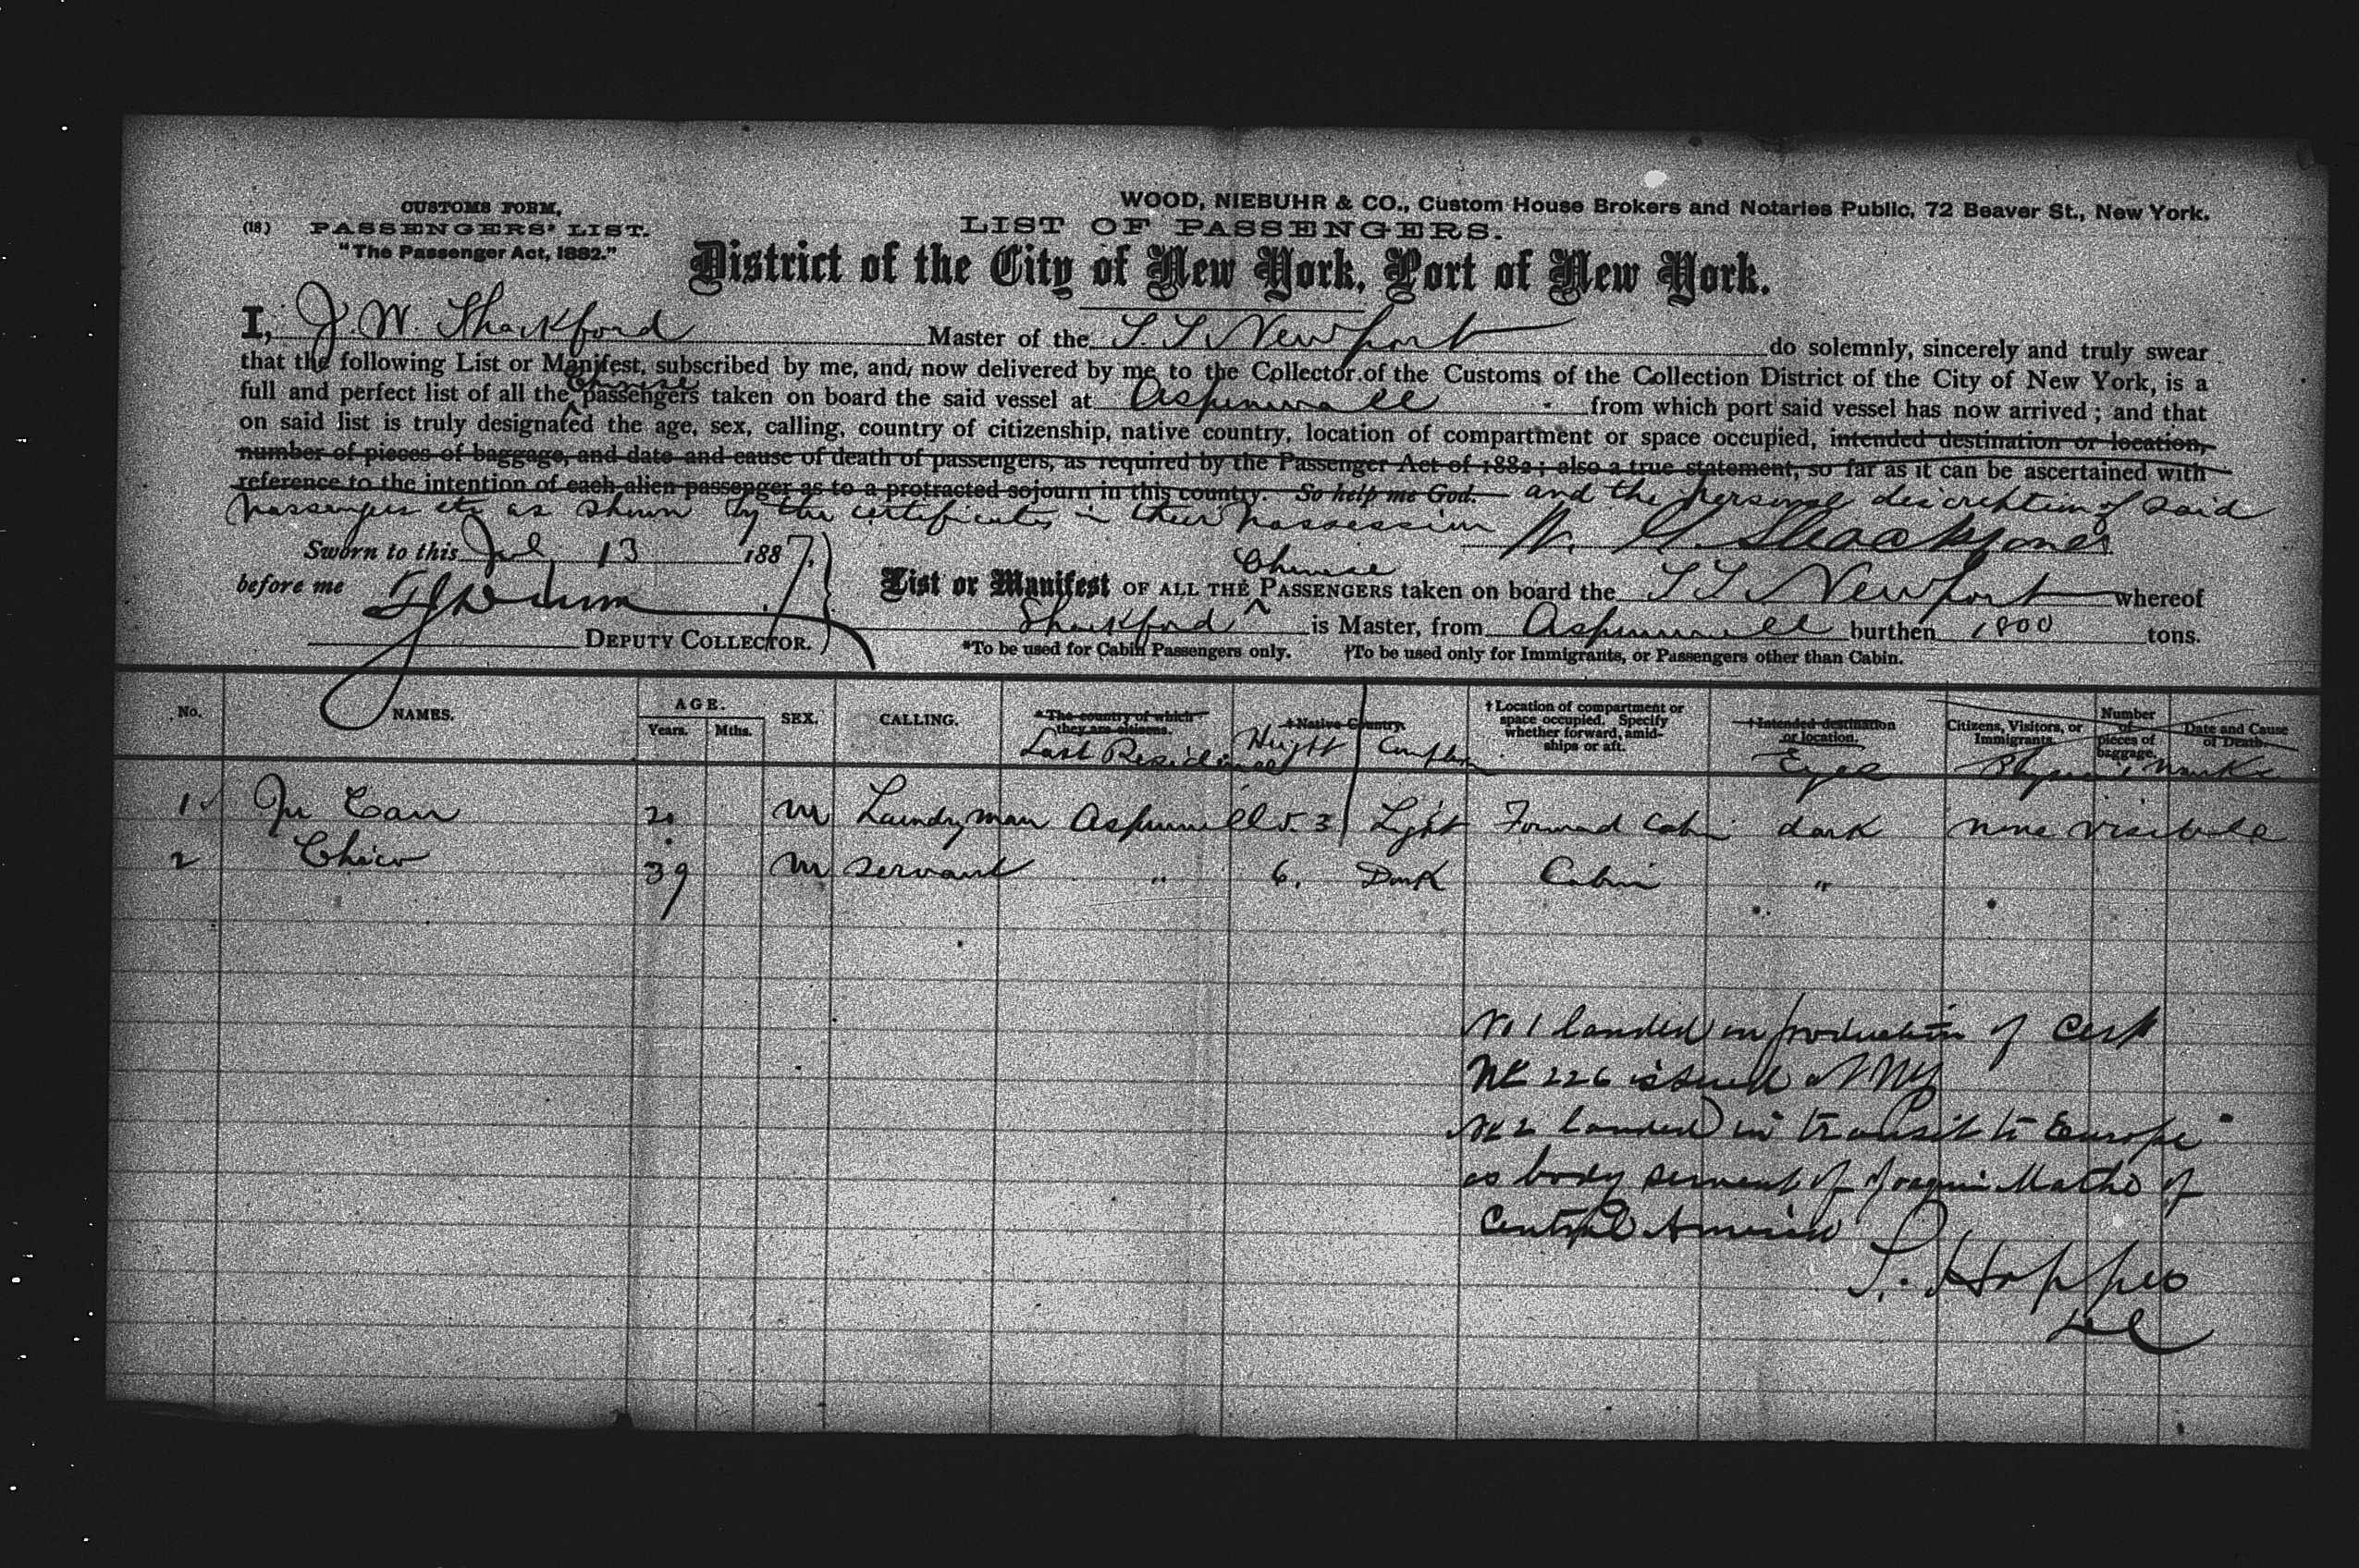 WOOD, NIEBUHR & CO., Custom House Brokers and Notaries Public, 72 Beaver St., New York.
CUSTOMS FORM,
(18) PASSENGERS' LIST.
"The Passenger Act, 1882."
LIST OF PASSENGERS.
District of the City of New York, Port of New York.
I, J. W. Shackford Master of the S.S. Newport do solemnly, sincerely and truly swear
that the following List or Manifest, subscribed by me, and now delivered by me to the Collector of the Customs of the Collection District of the City of New York, is a
full and perfect list of all the Chinese passengers taken on board the said vessel at Aspinwall from which port said vessel has now arrived; and that
on said list is truly designated the age, sex, calling, country of citizenship, native country, location of compartment or space occupied, intended destination or location,
number of pieces of baggage, and date and cause of death of passengers, as required by the Passenger Act of 1882; also a true statement, so far as it can be ascertained with
reference to the intention of each alien passenger as to a protracted sojourn in this country. So help me God. and the personal discrebtion of said
passenger etc as shown by the certificates in their possession
Sworn to this 13 1887.
before me
DEPUTY COLLECTOR.
List or Manifest OF ALL THE Chinese PASSENGERS taken on board the S.S. Newport whereof
Shackford is Master, from Aspinwall burthen 1800 tons.
*To be used for Cabin Passengers only. †To be used only for Immigrants, or Passengers other than Cabin.
No. NAMES. AGE. Years. Mths. SEX. CALLING. *The country of which they are citizens. Last Residence †Native Country. Height Complexn †Location of compartment or space occupied. Specify whether forward, amidships or aft. †Intended destination or location. Eyes Citizens, Visitors, or Immigrants. Number of pieces of baggage. Date and Cause of Death. Marks
1 m Laundryman Aspinwall 5.3 Light Forward Cabin dark none visible
2 Chico 39 m servant " 6. Dark Cabin "
No 1 landed on production of Cert
No 226 issued at NY
No 2 landed in transit to Europe
as body servant of Joaquin Mathe of
Central America